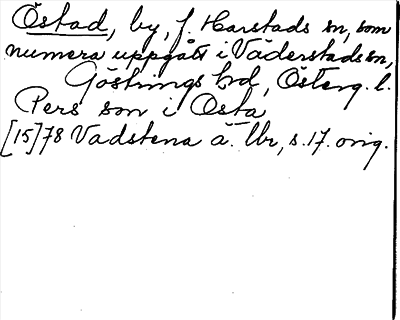 Östad, by, f. Harstads sn, som
numera uppgått i Väderstads sn,
Göstrings hd, Österg. l.
Pers son i Östa
[15]78 Vadstena ä. tbr, s. 17. orig.